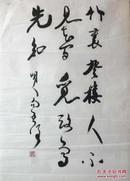 竹裏登樓人不
見花間覓路鳥
先知